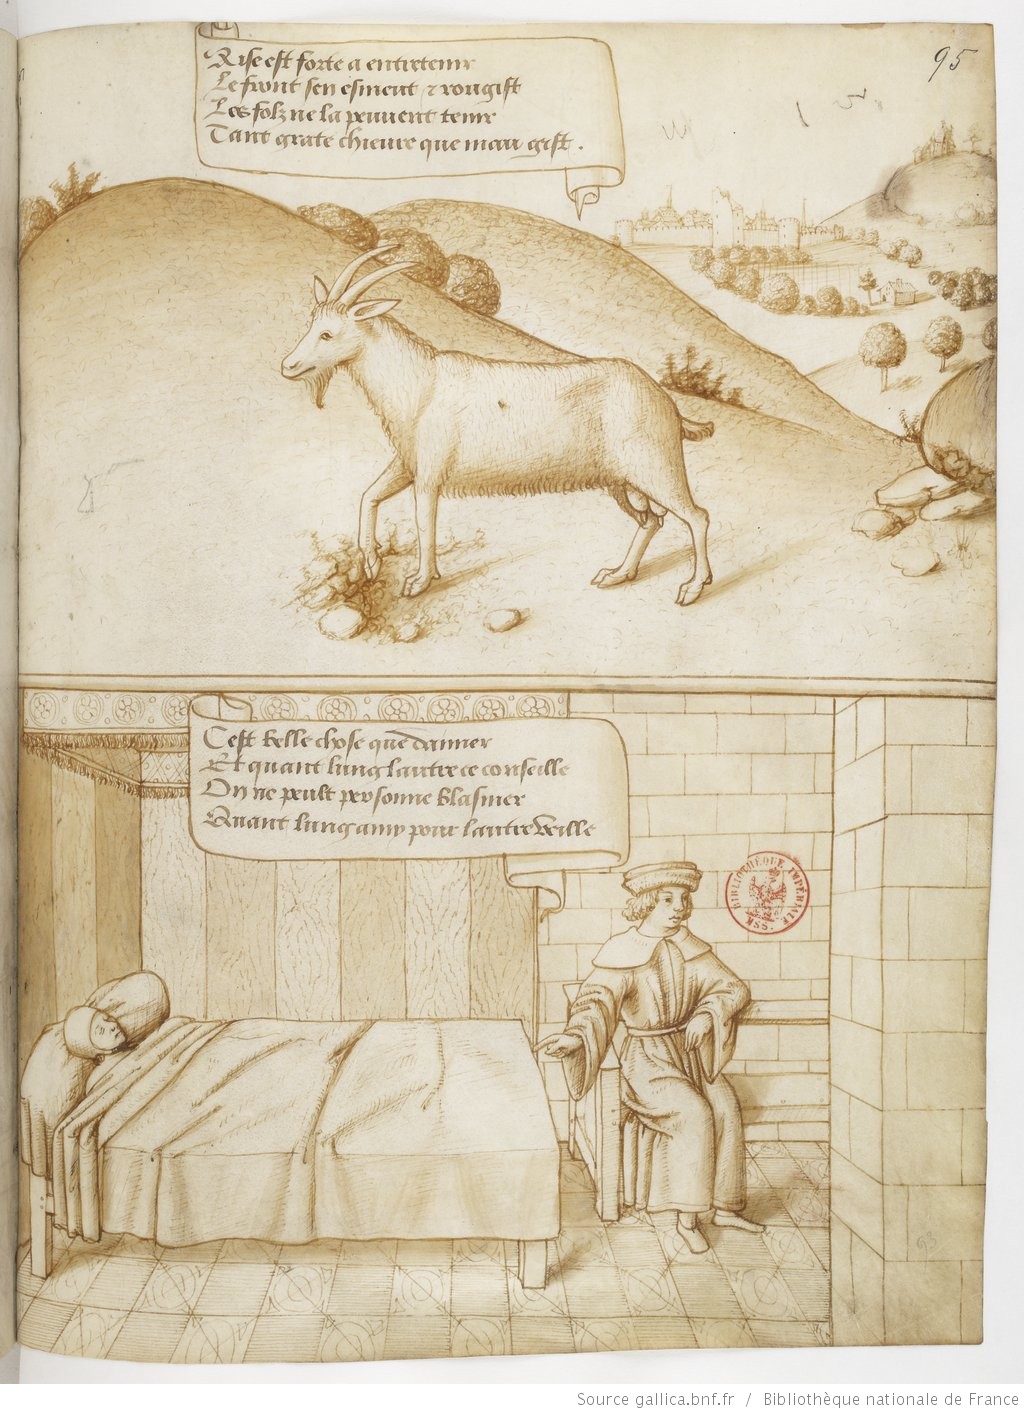 95
Aise est forte a entretenir
Le front sen esmeut & rougist
Les folz ne la peuvent tenir
Tant grate chieure que mau gist .
Cest belle chose que damer
Et quant lung lautre ce conseille
On ne peult personne blasmer
Quant lung amy pour lautre veille
BIBLIOTHÈQUE IMPÉRIALE
MSS.
Source gallica.bnf.fr / Bibliothèque nationale de France